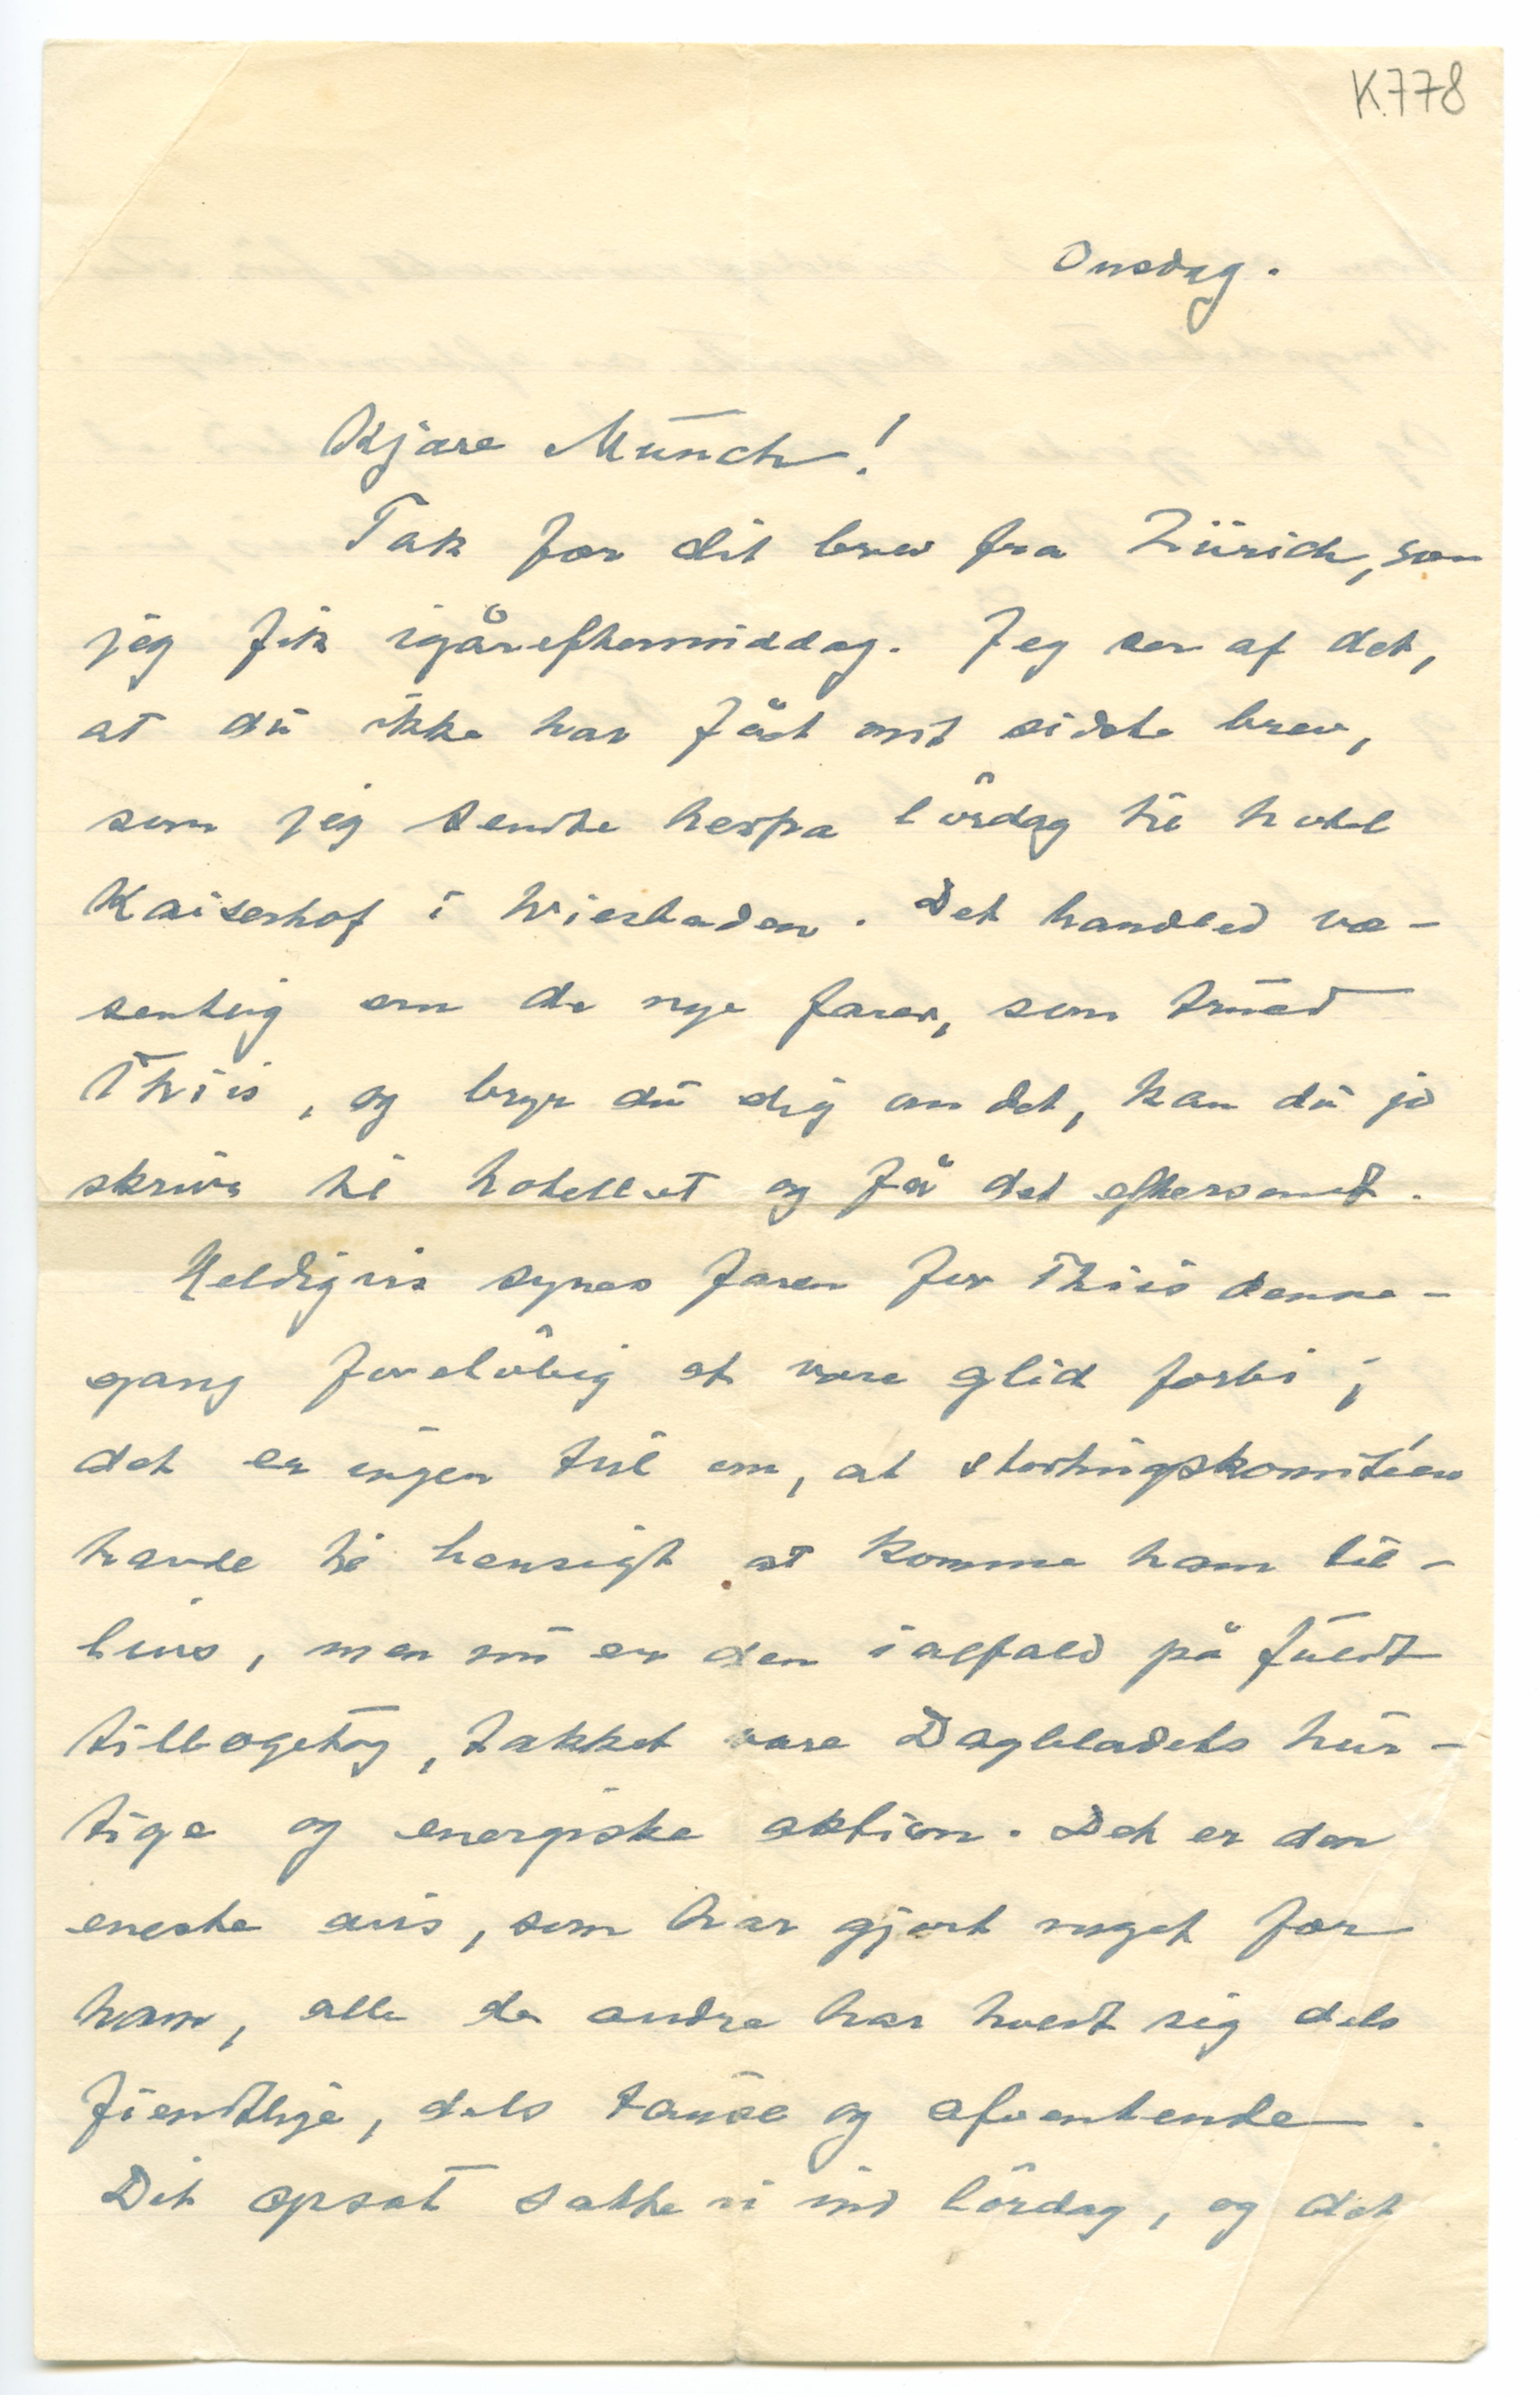 K.778
Onsdag.
Kjære Munch!
Tak for dit brev fra Zürich, som
jeg fik igåreftermiddag. Jeg ser af det,
at du ikke har fåt mit sidste brev,
som jeg sendte herfra lördag til hotel
Kaiserhof i Wiesbaden. Det handled væ-
sentlig om de nye farer, som trued
Thiis, og bryr du dig om det, kan du jo
skrive til hotellet og få det eftersendt.
Heldigvis synes faren for Thiis denne-
gang forelöbig at være glid forbi;
det er ingen tvil om, at stortingskomitéen
havde til hensigt at komme ham til-
livs, men nu er den ialfald på fuldt
tilbagetog, takket være Dagbladets hur-
tige og energiske aktion. Det er den
eneste avis, som har gjort noget for
ham, alle de andre har holdt sig dels
fiendtlige, dels tause og afventende.
Dit opsat satte vi ind lördag, og det